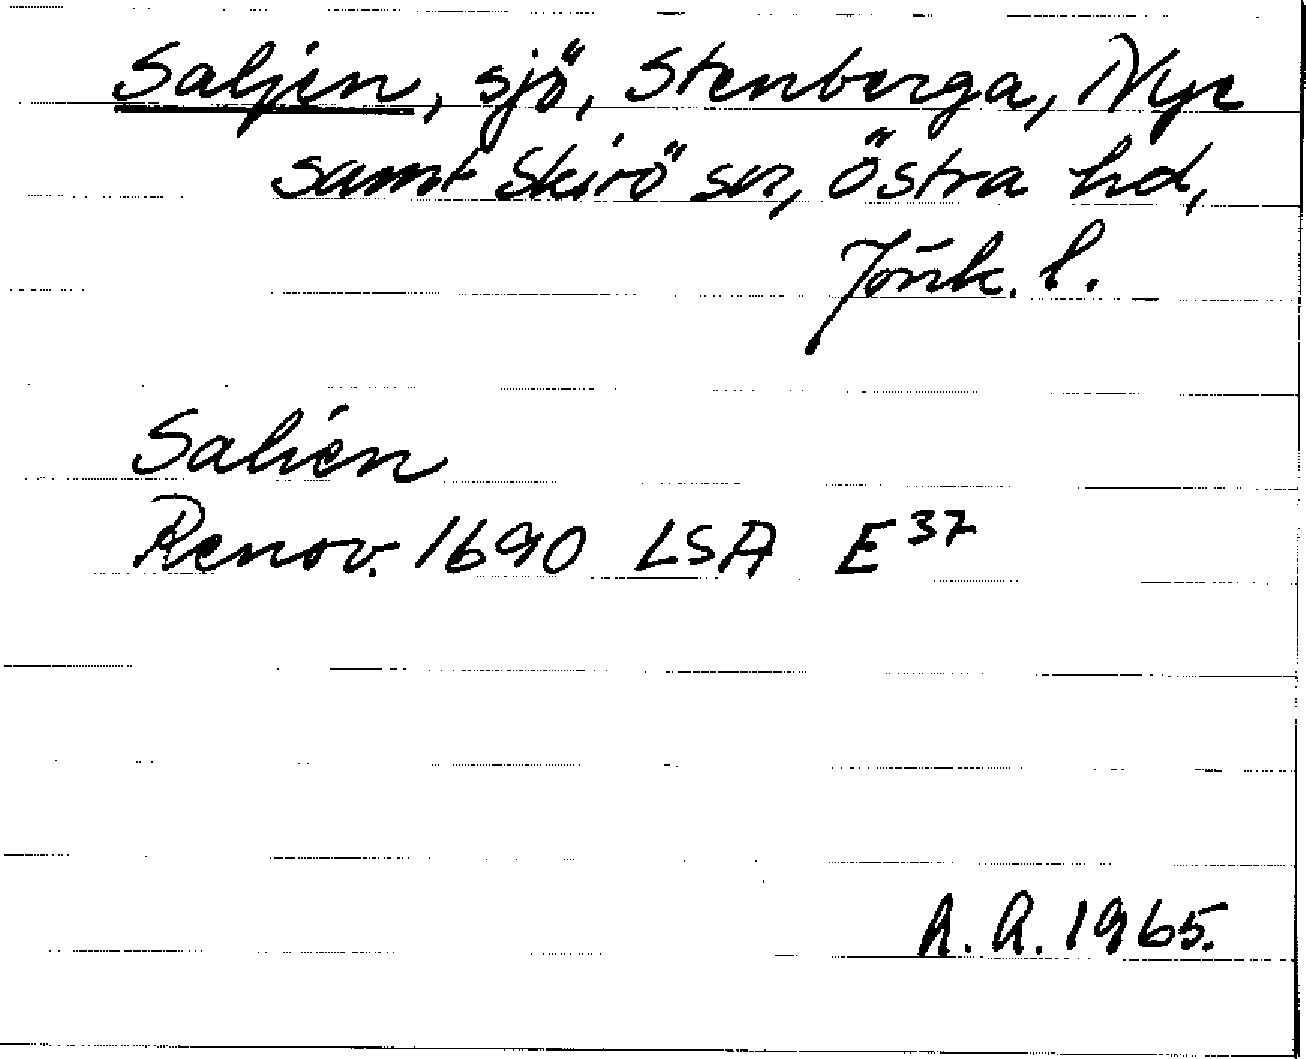 Saljen, sjö, Stenberga, Nye
samt Skirö snr, Östra hd,
Jönk. l.
Salién
Renov. 1690 LSA E 37
A. A. 1965.